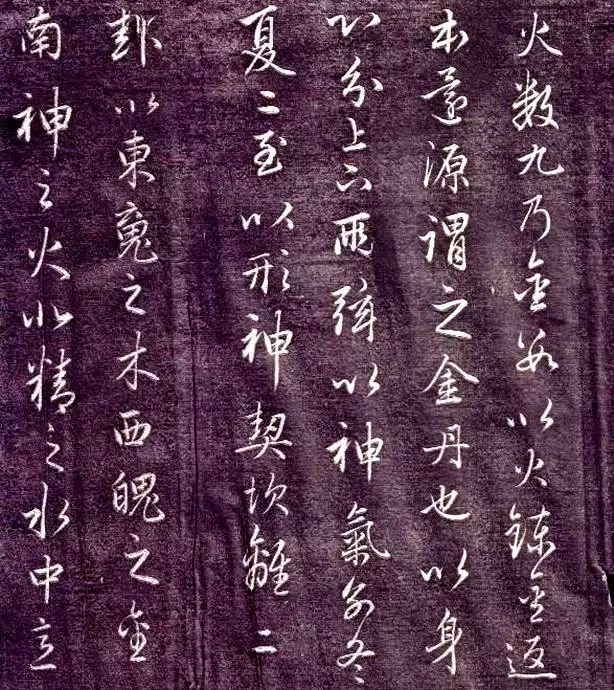 火数九乃金数以火鍊金返
本還源謂之金丹也以身
心分上下兩弦以神氣別冬
夏二至以形神契坎離二
卦以東魂之木西魄之金
南神之火北精之水中意